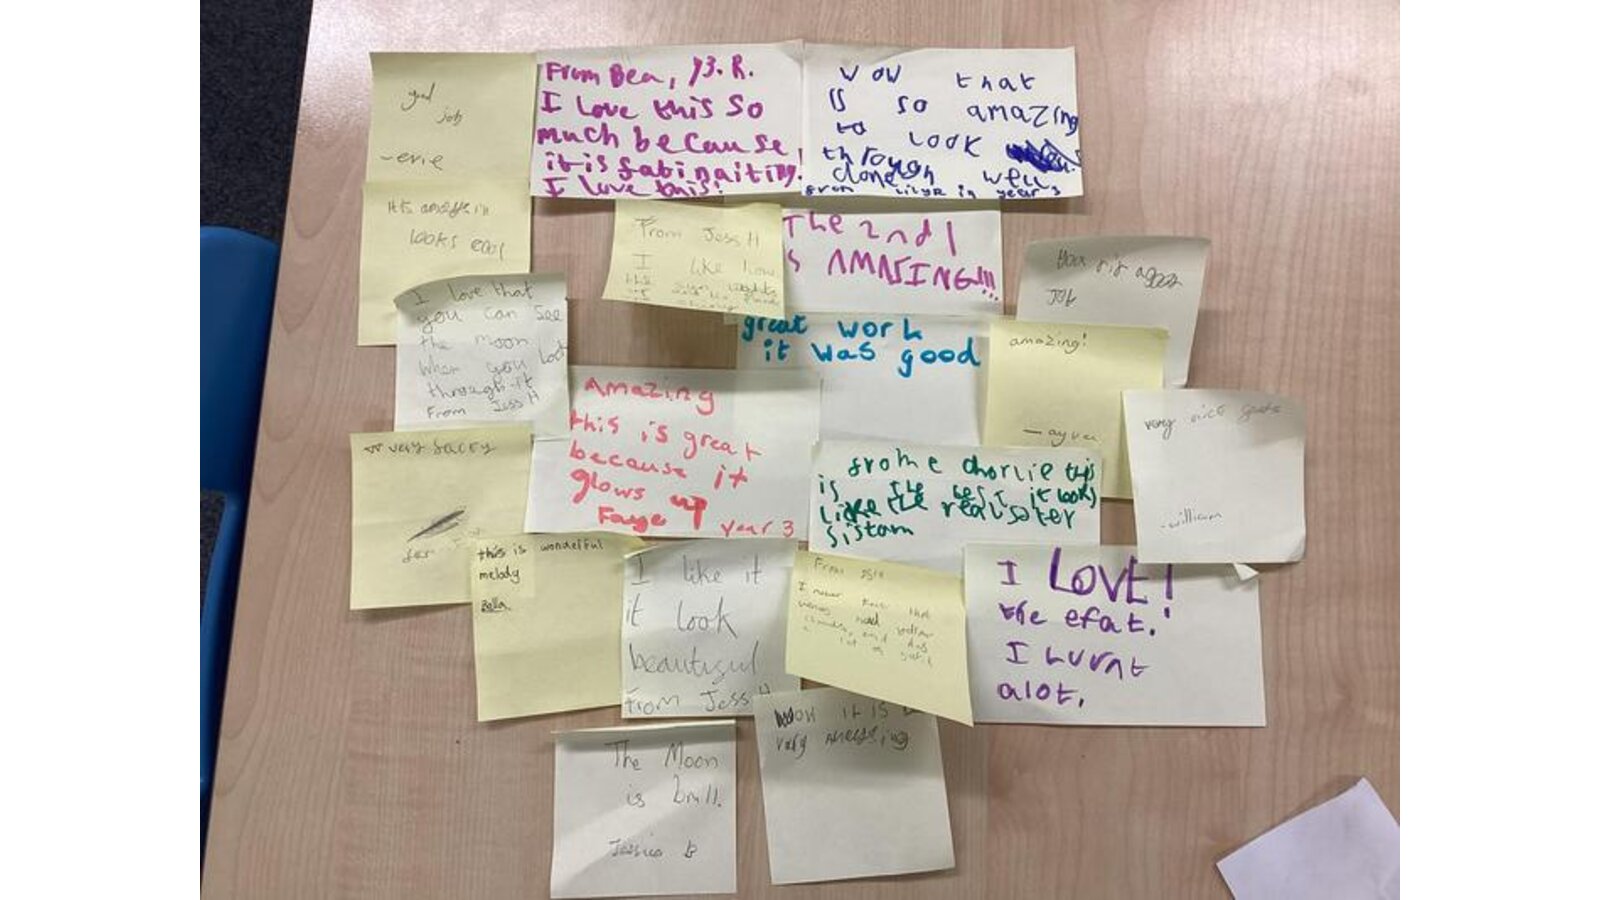 good
job
-evie
From Bea, y3.R.
I love this so
much because
it is fatinaiting!
I love this!
wow that
is so amazing
to look
through
done well
from in year 3
its
looks cool
From Jess H
I like how
The 2nd 1
s AMAZING!!!
JOB
I love that
you can see
the moon
when you look
through it
From Jess H
great work
it was good
amazing!
Amazing
this is great
because it
glows up
Faye year 3
very nice
-william
very
frome chorlie this
is the best it looks
like the real soter
sistam
this is wonderful
melody
Bella
I like it
it look
beautiful
From Jess H
From
I never that
had
and
I LOVE!
the efat.!
I Lurnt
alot.
wow it is
very
The Moon
is brill.
Jessica B